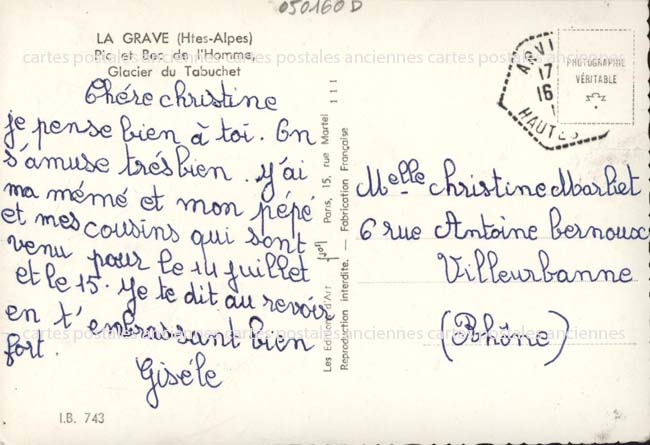 050160D
LA GRAVE (Htes-Alpes)
Pic et Bec de l'Homme,
Glacier du Tabuchet
cartes postales anciennes cartes postales anciennes cartes postales anciennes
Chére christine
je pense bien à toi. On
s'amuse trés bien. J'ai
ma mémé et mon pépé
et mes cousins qui sont
venu pour le 14 juillet
et le 15. Je te dit au revoir
en t'embrassant bien
fort.
Giséle
I.B. 743
Les Editions d'Art Paris, 15, rue Martel 111
Reproduction interdite. — Fabrication Française
ARVI
17
16
HAUTES
PHOTOGRAPHIE
VÉRITABLE
Melle christine Marliet
6 rue Antoine bernoux
Villeurbanne
(Rhône)
cartes postales anciennes cartes postales anciennes cartes postales anciennes